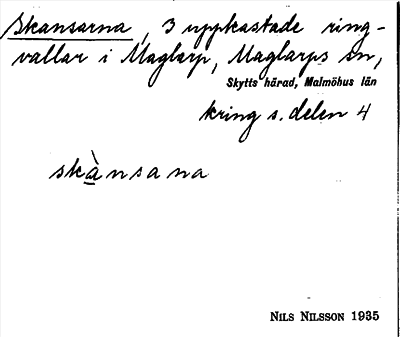 Skansarna, 3 uppkastade ring-
vallar i Maglarp, Maglarps sn,
Skytts härad, Malmöhus län
kring s. delen 4
skànsana
NILS NILSSON 1935